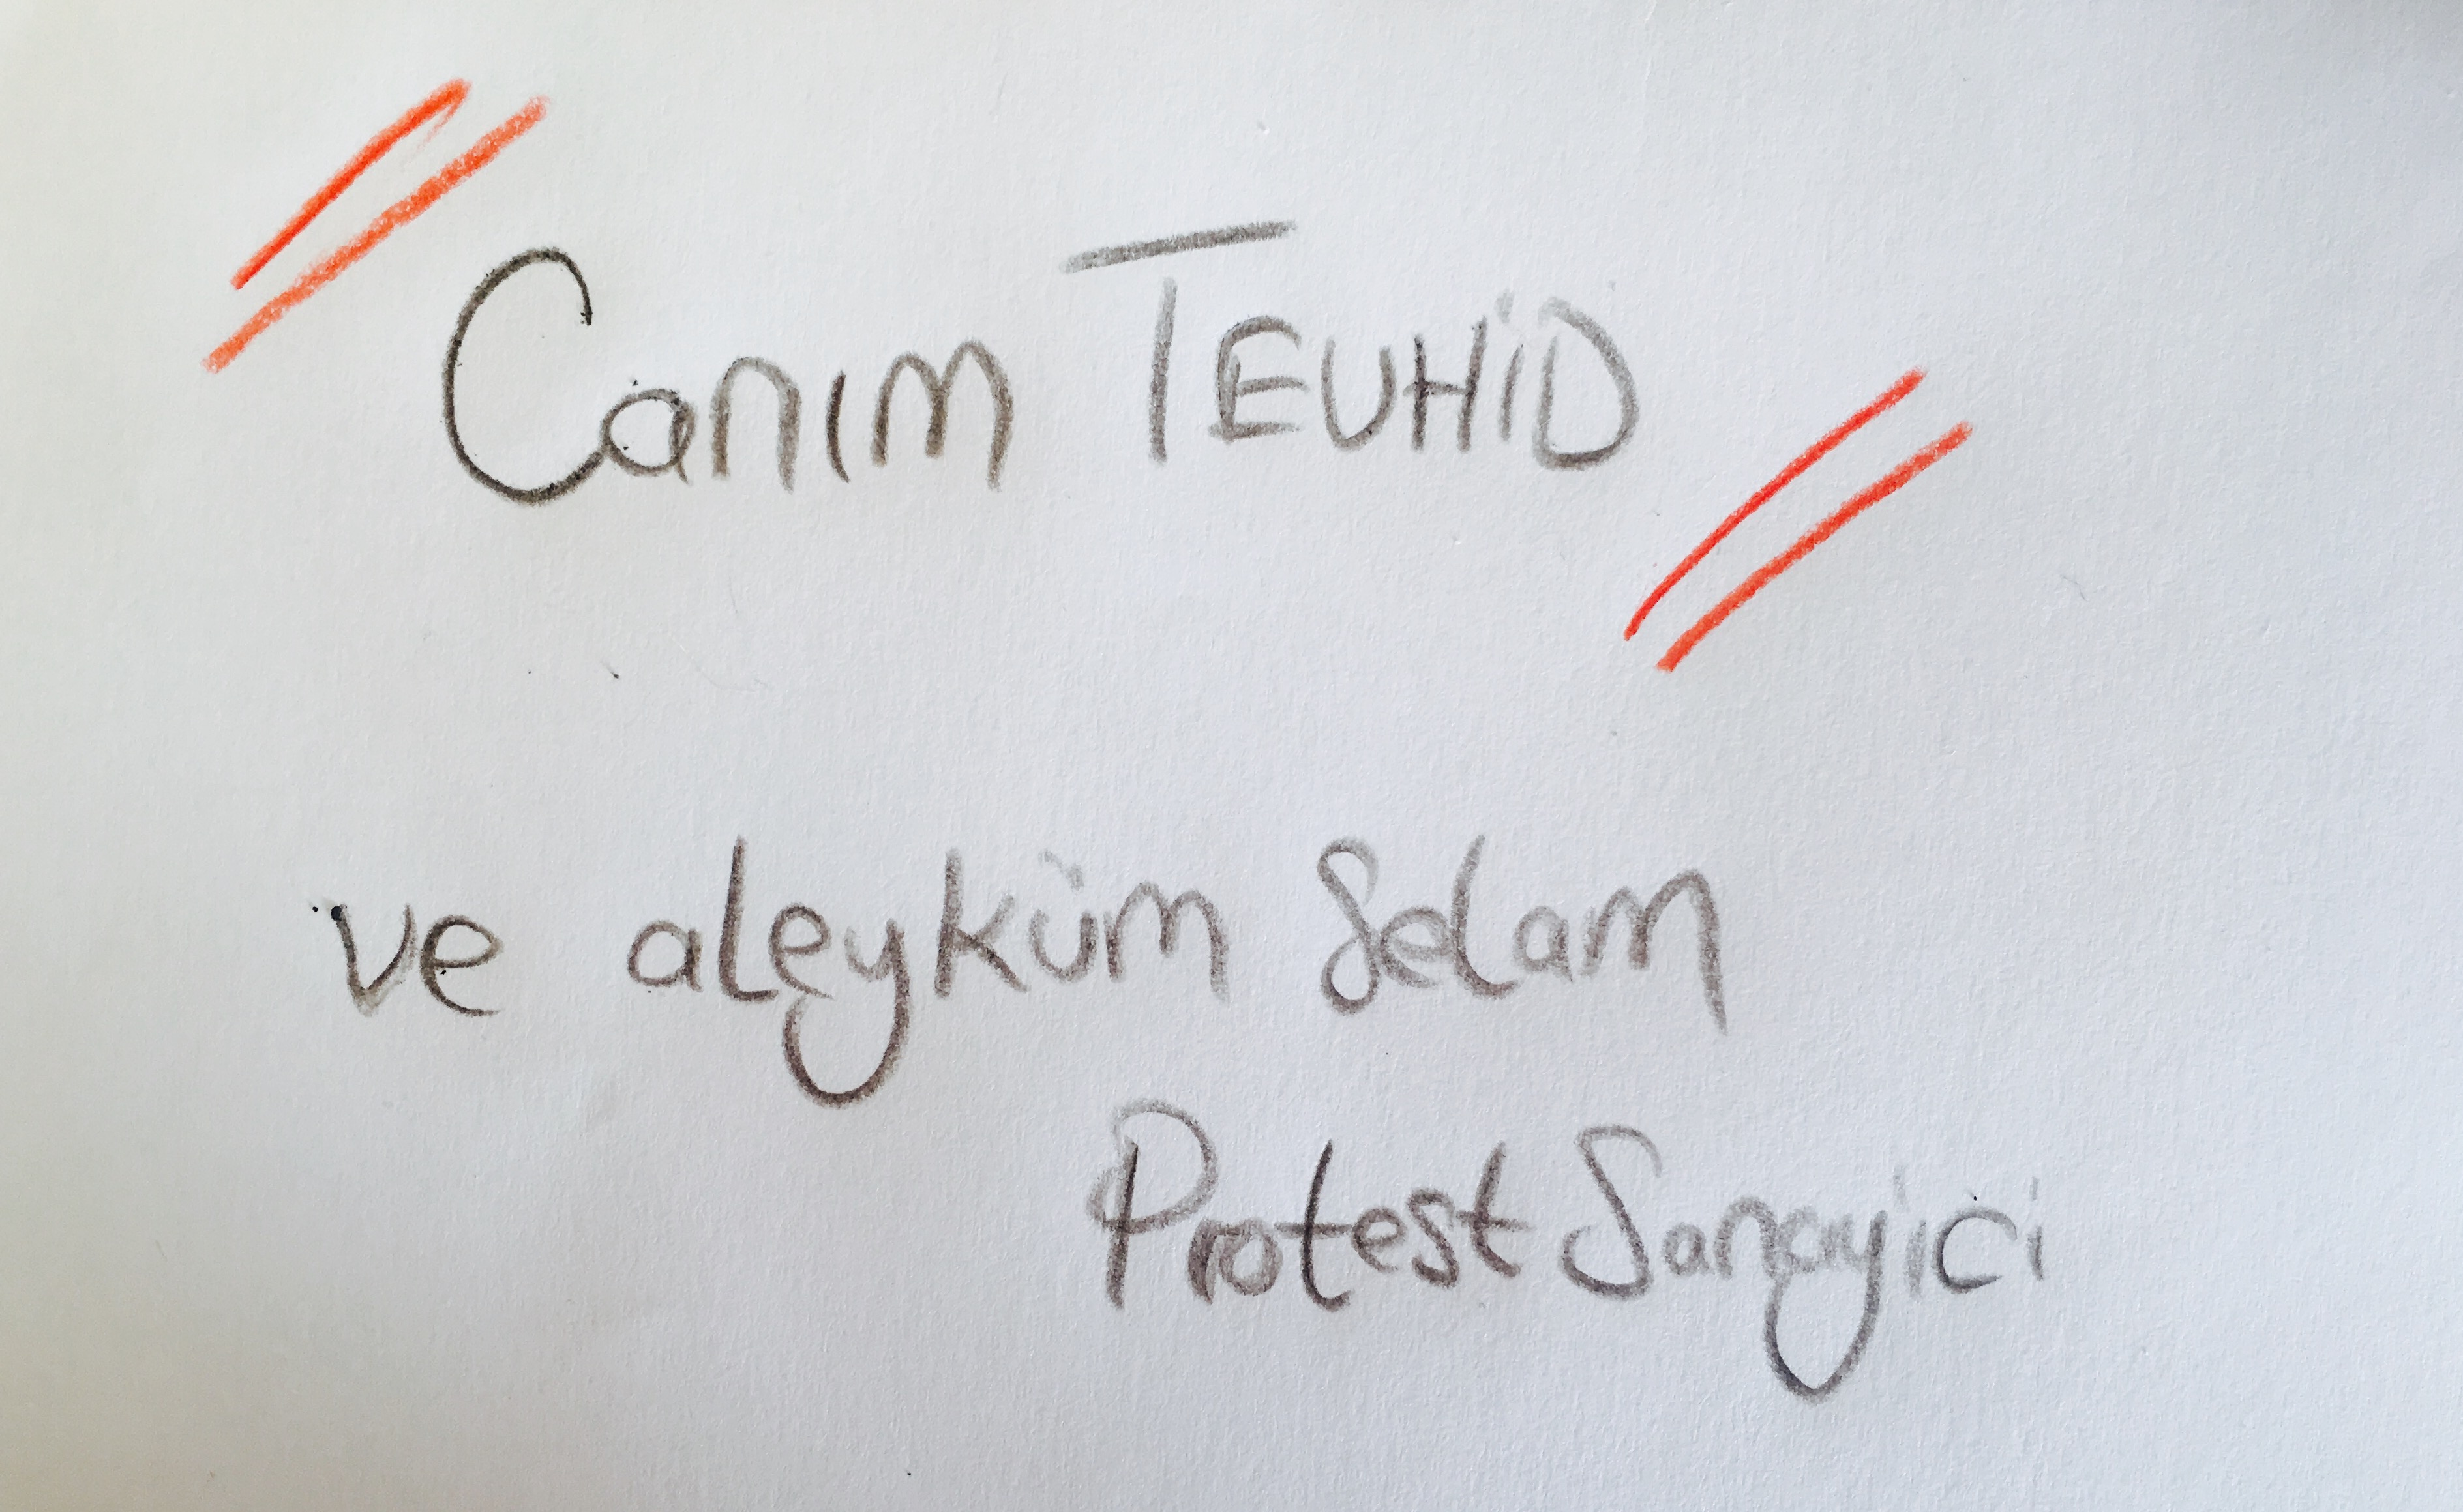 Canım TEVHİD
ve aleyküm selam
Protest Sanayici